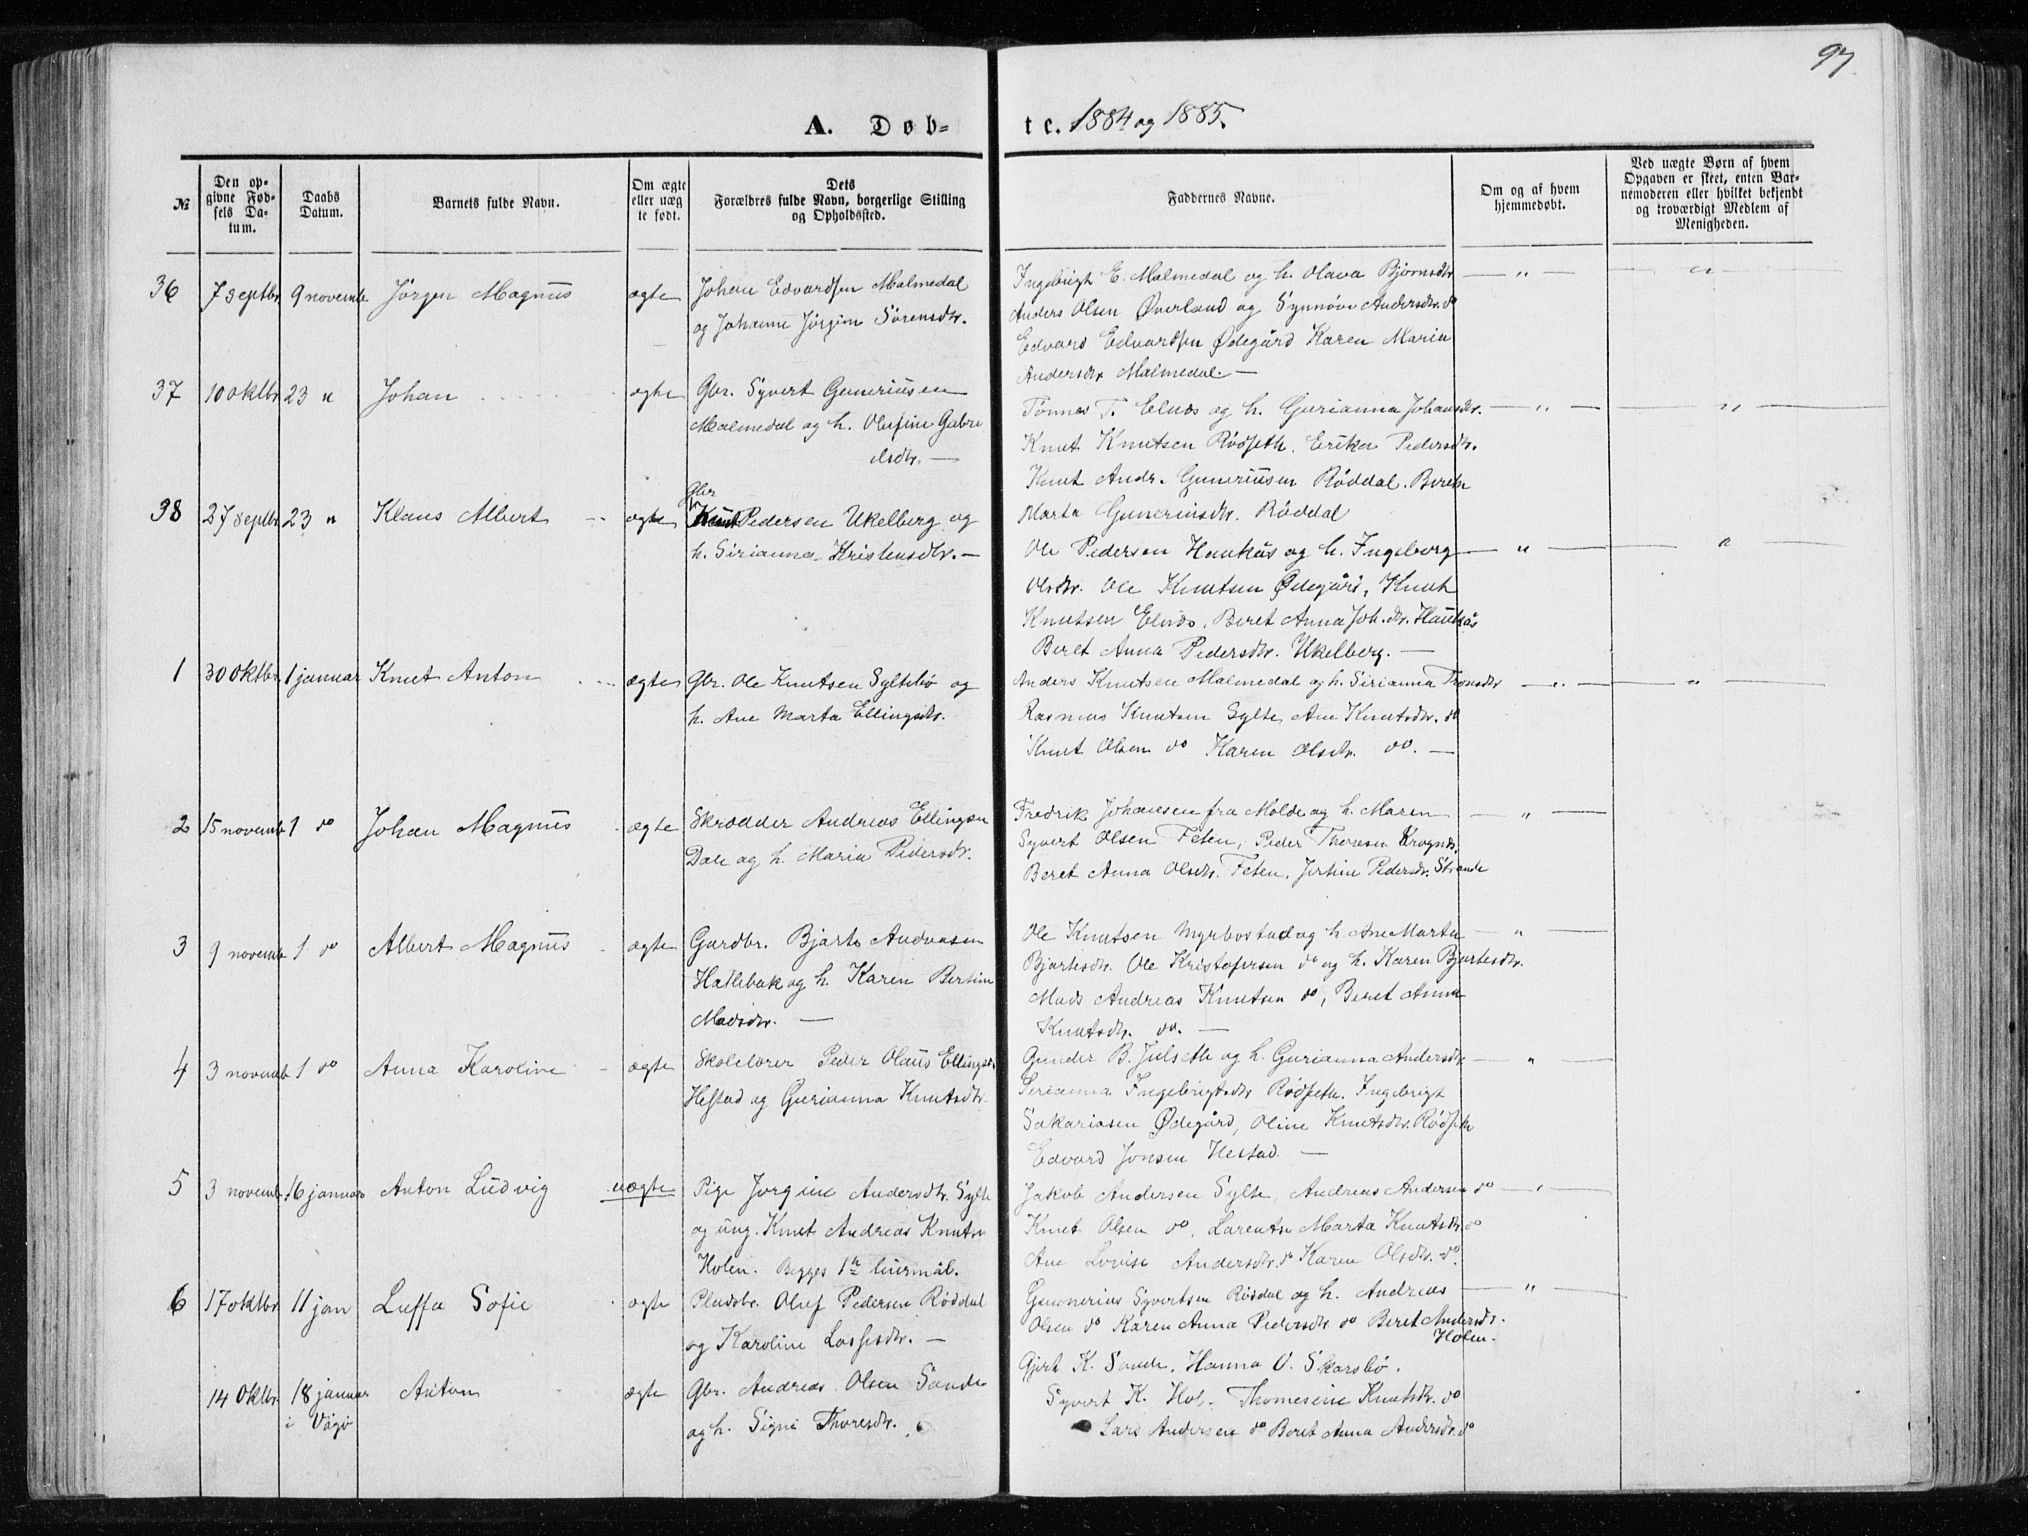 97.
A. Dob-
te. 1884 og 1885.
№
Den op-
givne Fød-
sels Da-
tum.
Daabs
Datum.
Barnets fulde Navn.
Om ægte
eller uæg
te født.
Dets
Forældres fulde Navn, borgerlige Stilling
og Opholdssted.
Faddernes Navne.
Om og af hvem
hjemmedøbt.
Ved uægte Børn af hvem
Opgaven er skeet, enten Bar-
nemoderen eller hvilket bekjendt
og troværdigt Medlem af
Menigheden.
36 7 septbr 9 novemb Jörgen Magnus ægte Johan Edvardsen Malmedal
og Johanne Jörgine Sörensdtr.
Ingebrigt E. Malmedal og h. Olava Bjørnsdtr — " — "
Anders Olsen Överland og Synnöve Andersdtr. do
Edvard Edvardsen Ødegård Karen Maria
Andersdtr Malmedal. —
37 10 oktbr 23 " Johan ægte Gbr. Syvert Guneriusen
Malmedal og h. Olefine Gabri
elsdtr. —
Tønnes T. Elnæs og h. Gurianna Johansdtr. — " — — " —
Knut Knutsen Rödseth. Erika Pedersdtr.
Knut Andr. Guneriusen Röddal. Beret
Marta Guneriusdtr. Röddal
38 27 septbr 23 " Klaus Albert ægte Gbr
Knut Pedersen Ukelberg og
h. Sirianna Kristensdtr. —
Ole Pedersen Haukås og h. Ingeborg — " — "
Olsdtr. Ole Knutsen Ødegård, Knut
Knutsen Elnæs, Beret Anna Joh.dtr. Haukås
Beret Anna Pedersdtr. Ukelberg. —
1 30 oktbr 1 januar Knut Anton ægte Gbr. Ole Knutsen Syltebö og
h. Ane Marta Ellingsdtr.
Anders Knutsen Malmedal og h. Sirianna Tronsdtr — " — " —
Rasmus Knutsen Sylte, Ane Knutsdtr. do
Knut Olsen do Karen Olsdtr. do. —
2 15 novemb 1 do Johan Magnus ægte Skrædder Andreas Ellingsen
Dale og h. Maria Pedersdtr.
Fredrik Johansen fra Molde og h. Maren — " —
Syvert Olsen Feten, Peder Thoresen
Beret Anna Olsdtr. Feten, Jertine Pedersdtr. Strande
3 9 novemb 1 do Albert Magnus ægte Gardbr. Bjarte Andreasen
Hatlebak og h. Karen Bertine
Madsdtr. —
Ole Knutsen Myrbostad og h. Ane Marta — " —
Bjartesdtr. Ole Kristofersen do og h. Karen Bjartesdtr.
Mads Andreas Knutsen do, Beret Anna
Knutsdtr. do. —
4 3 novemb 1 do Anna Karoline ægte Skolelærer Peder Olaus Ellingsn
Hestad og Gurianna Knutsdtr.
Gunder B. Julseth og h. Gurianna Andersdtr — "
Serianna Ingebrigtsdtr Rödseth. Ingebrigt
Sakariasen Ødegård, Oline Knutsdtr. Rödseth
Edvard Jonsen Hestad. —
5 3 novemb. 16 januar Anton Ludvig uægte Pige Jorgine Andersdtr. Sylte
og ung. Knut Andreas Knutsn
Holen. Begges 1te leiermål.
Jakob Andersen Sylte, Andreas Andersen do —
Knut Olsen do, Larentse Marta Knutsdtr. do
Ane Lovise Andersdtr. do Karen Olsdtr. do.
6 17 oktbr 11 jan Luffa Sofie ægte Pladsbr. Oluf Pedersen Röddal
og Karoline Lassesdtr. —
Gunnerius Syvertsen Röddal og h. Andreas — " —
Olsen do Karen Anna Pedersdtr do Beret Andersdtr.
Holen.
14 Oktbr. 18 januar
i Vågö Anton ægte Gbr. Andreas Olsen Sande
og h. Signi Thoresdtr.
Gjert K. Sande, Hanna O. Skarsbö.
Syvert K. Hol. Thomesine Knutsdtr. do
Lars Andersen do Beret Anna Andersdtr. do